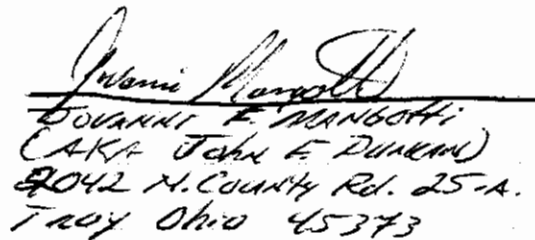 Jovanni Mangotti
JOVANNI E MANGOTTI
(AKA John E DUNCAN)
2042 N. County Rd. 25-A.
Troy Ohio 45373